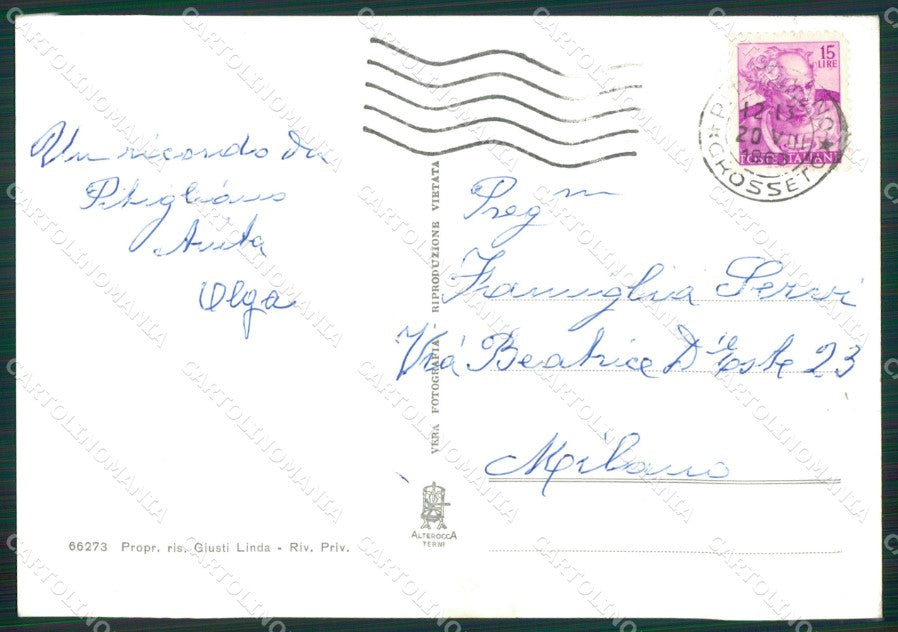 Un ricordo da
Pitigliano
Anita
Olga
66273 Propr. ris. Giusti Linda - Riv. Priv.
VERA FOTOGRAFIA - RIPRODUZIONE VIETATA
ALTEROCCA
TERNI
15
LIRE
POSTE ITALIANE
12-13
20 VIII
1963
GROSSETO
Preg m
Famiglia Servi
Via Beatrice D'Este 23
Milano
CARTOLINOMANIA